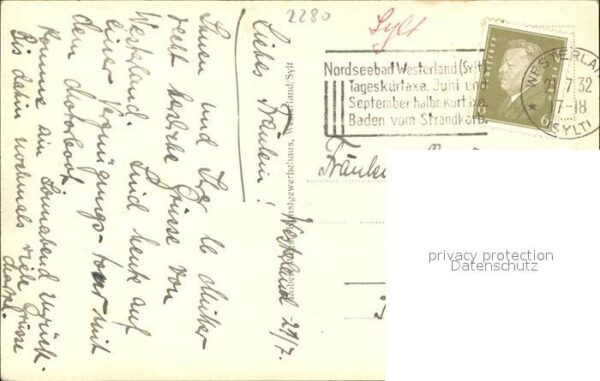 2280
Sylt
Nordseebad Westerland (Sylt)
Tageskurtaxe. Juni und
September halbe Kurtaxe.
Baden vom Strandkorb.
WESTERLAND
7.32
17-18
(SYLT)
6 6
Fräulein
Westerland 29/7.
Liebes Fräulein!
Ihnen und Ihrer lb Mutter
recht herzliche Grüsse von
Westerland. Sind heute auf
einer Vergnügungs-tour mit
dem Motorboot
komme am Sonnabend zurück.
Bis dahin nochmals viele Grüsse
kunstgewerbehaus, Westerland, Sylt
privacy protection
Datenschutz